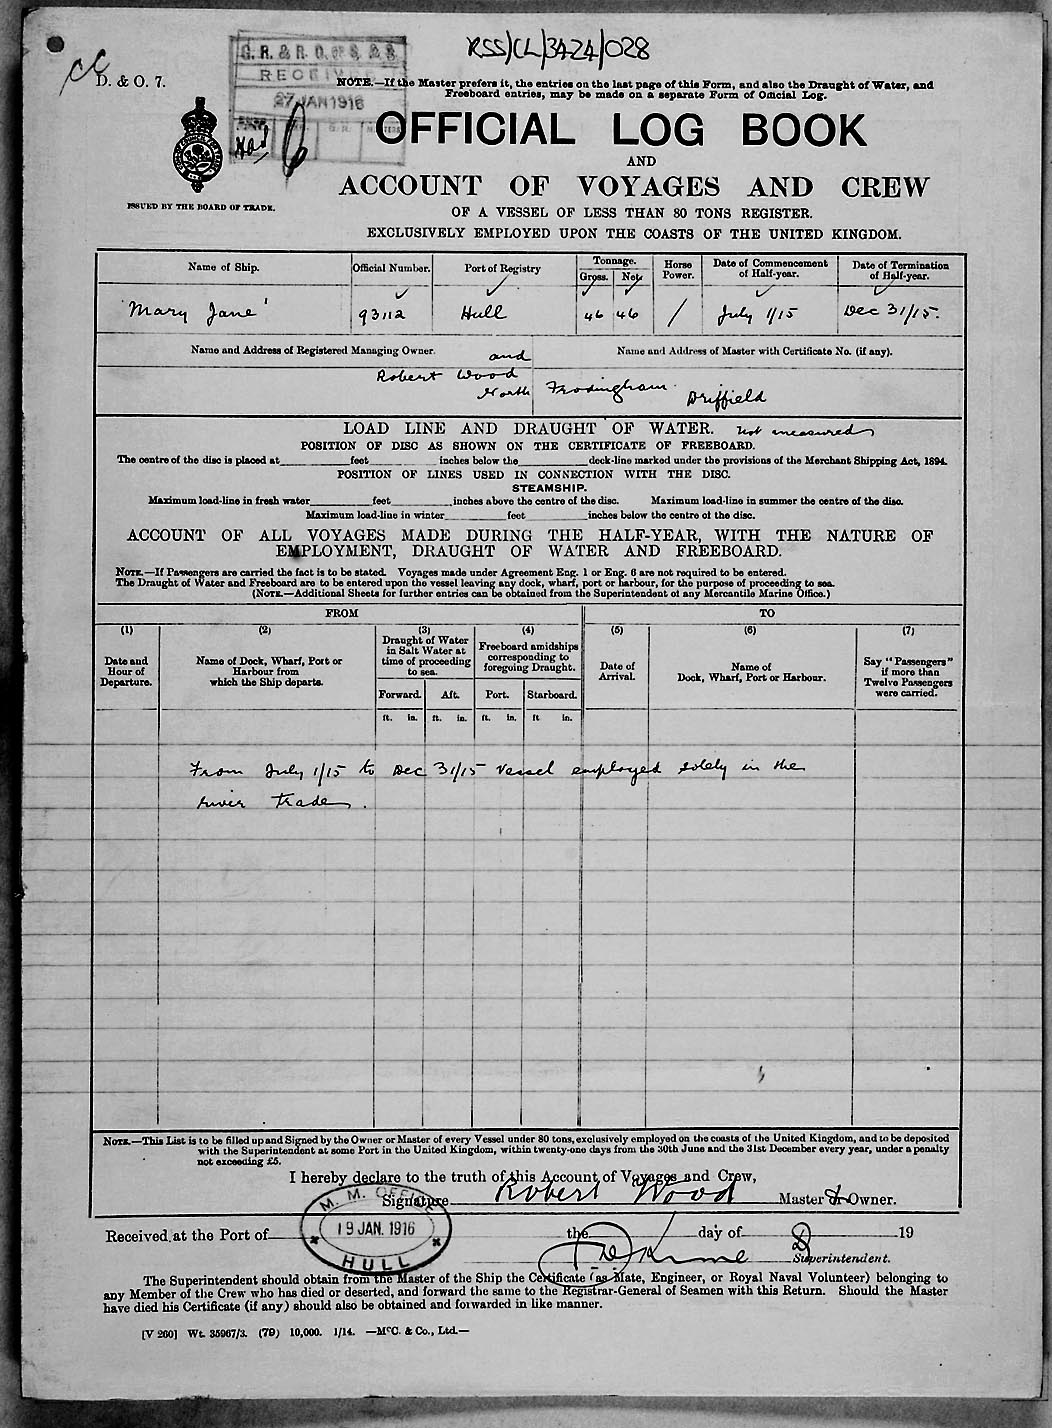 RSS/CL/3424/028
D. & O. 7.
G. R. & R. O. OF S. & S.
RECEIVED
27 JAN 1916
NOTE.—If the Master prefers it, the entries on the last page of this Form, and also the Draught of Water, and
Freeboard entries, may be made on a separate Form of Official Log.
OFFICIAL LOG BOOK
AND
ACCOUNT OF VOYAGES AND CREW
ISSUED BY THE BOARD OF TRADE.
OF A VESSEL OF LESS THAN 80 TONS REGISTER.
EXCLUSIVELY EMPLOYED UPON THE COASTS OF THE UNITED KINGDOM.
Name of Ship. Official Number. Port of Registry Tonnage. Gross. Net. Horse Power. Date of Commencement of Half-year. Date of Termination of Half-year.
'Mary Jane' 93112 Hull 46 46 / July 1/15 Dec 31/15.
Name and Address of Registered Managing Owner. and Name and Address of Master with Certificate No. (if any).
Robert Wood
North Frodingham Driffield
LOAD LINE AND DRAUGHT OF WATER. not measured
POSITION OF DISC AS SHOWN ON THE CERTIFICATE OF FREEBOARD.
The centre of the disc is placed at feet inches below the deck-line marked under the provisions of the Merchant Shipping Act, 1894.
POSITION OF LINES USED IN CONNECTION WITH THE DISC.
STEAMSHIP.
Maximum load-line in fresh water feet inches above the centre of the disc. Maximum load-line in summer the centre of the disc.
Maximum load-line in winter feet inches below the centre of the disc.
ACCOUNT OF ALL VOYAGES MADE DURING THE HALF-YEAR, WITH THE NATURE OF
EMPLOYMENT, DRAUGHT OF WATER AND FREEBOARD.
NOTE.—If Passengers are carried the fact is to be stated. Voyages made under Agreement Eng. 1 or Eng. 6 are not required to be entered.
The Draught of Water and Freeboard are to be entered upon the vessel leaving any dock, wharf, port or harbour, for the purpose of proceeding to sea.
(NOTE.—Additional Sheets for further entries can be obtained from the Superintendent of any Mercantile Marine Office.)
FROM TO
(1) (2) (3) (4) (5) (6) (7)
Date and Hour of Departure.
Name of Dock, Wharf, Port or Harbour from which the Ship departs.
Draught of Water in Salt Water at time of proceeding to sea.
Freeboard amidships corresponding to foregoing Draught.
Date of Arrival.
Name of Dock, Wharf, Port or Harbour.
Say "Passengers" if more than Twelve Passengers were carried.
Forward. Aft. Port. Starboard.
ft. in. ft. in. ft. in. ft in.
From July 1/15 to Dec 31/15 vessel employed solely in the
river trade.
NOTE.—This List is to be filled up and Signed by the Owner or Master of every Vessel under 80 tons, exclusively employed on the coasts of the United Kingdom, and to be deposited
with the Superintendent at some Port in the United Kingdom, within twenty-one days from the 30th June and the 31st December every year, under a penalty
not exceeding £5.
I hereby declare to the truth of this Account of Voyages and Crew,
Signature Robert Wood Master & Owner.
M. M. OFFICE
19 JAN. 1916
HULL
Received at the Port of the day of 19
Superintendent.
The Superintendent should obtain from the Master of the Ship the Certificate (as Mate, Engineer, or Royal Naval Volunteer) belonging to
any Member of the Crew who has died or deserted, and forward the same to the Registrar-General of Seamen with this Return. Should the Master
have died his Certificate (if any) should also be obtained and forwarded in like manner.
[V 260] Wt. 35967/3. (79) 10,000. 1/14. —McC. & Co., Ltd.—